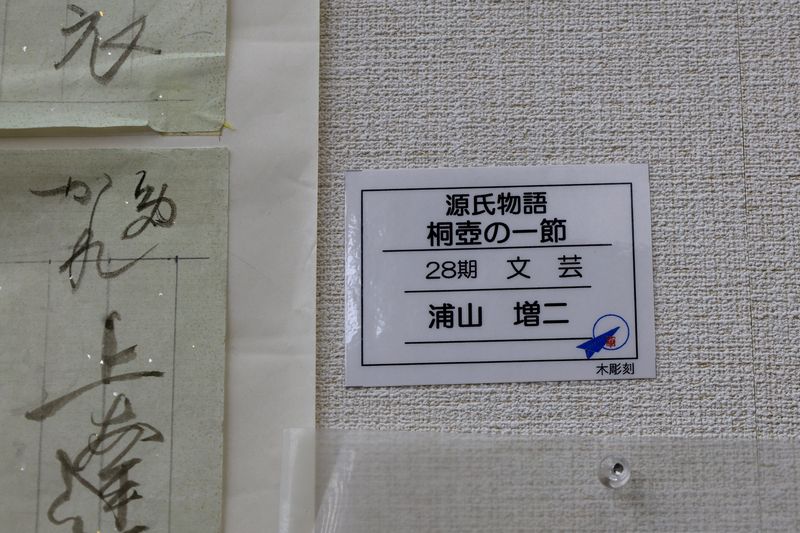 源氏物語
桐壺の一節
28期 文 芸
浦山 増二
木彫刻
衣
上